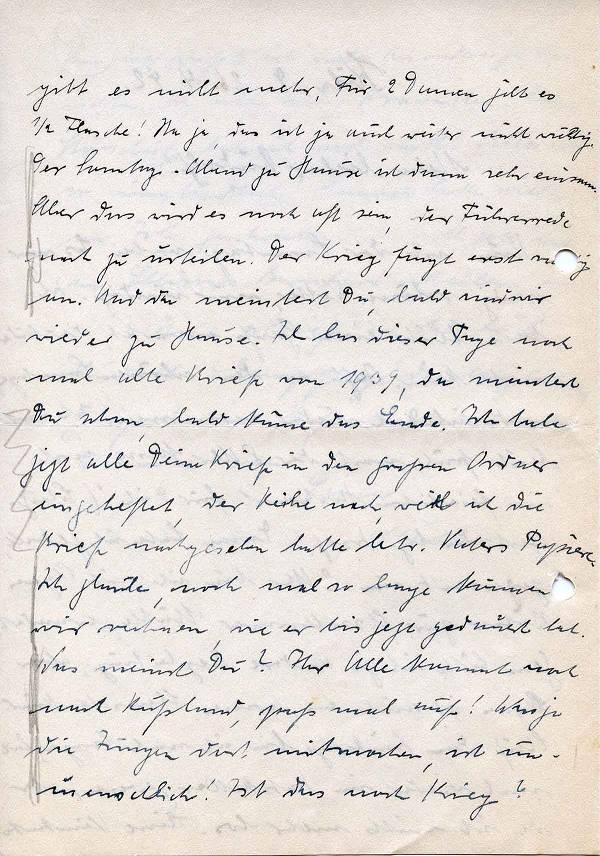 gibt es nicht mehr. Für 2 Damen gibt es
1/2 Flasche! Na ja, das ist ja auch weiter nicht wichtig.
Der Sonntag-Abend zu Hause ist dann sehr einsam.
Aber das wird es noch oft sein, der Führerrede
nach zu urteilen. Der Krieg fängt erst richtig
an. Und da meintest Du, bald sind wir
wieder zu Hause. Ich las dieser Tage noch
mal alte Briefe von 1939, da meintest
Du schon, bald käme das Ende. Ich habe
jetzt alle Deine Briefe in den großen Ordner
eingeheftet, der Reihe nach, weil ich die
Briefe nachgesehen hatte betr. Vaters Papiere.
Ich glaube, noch mal so lange können
wir rechnen, wie er bis jetzt gedauert hat.
Was meinst Du? Ihr Alle kommt noch
nach Rußland, paß mal auf! Was ja
die Jungen dort mitmachen, ist un-
menschlich! Ist das noch Krieg?